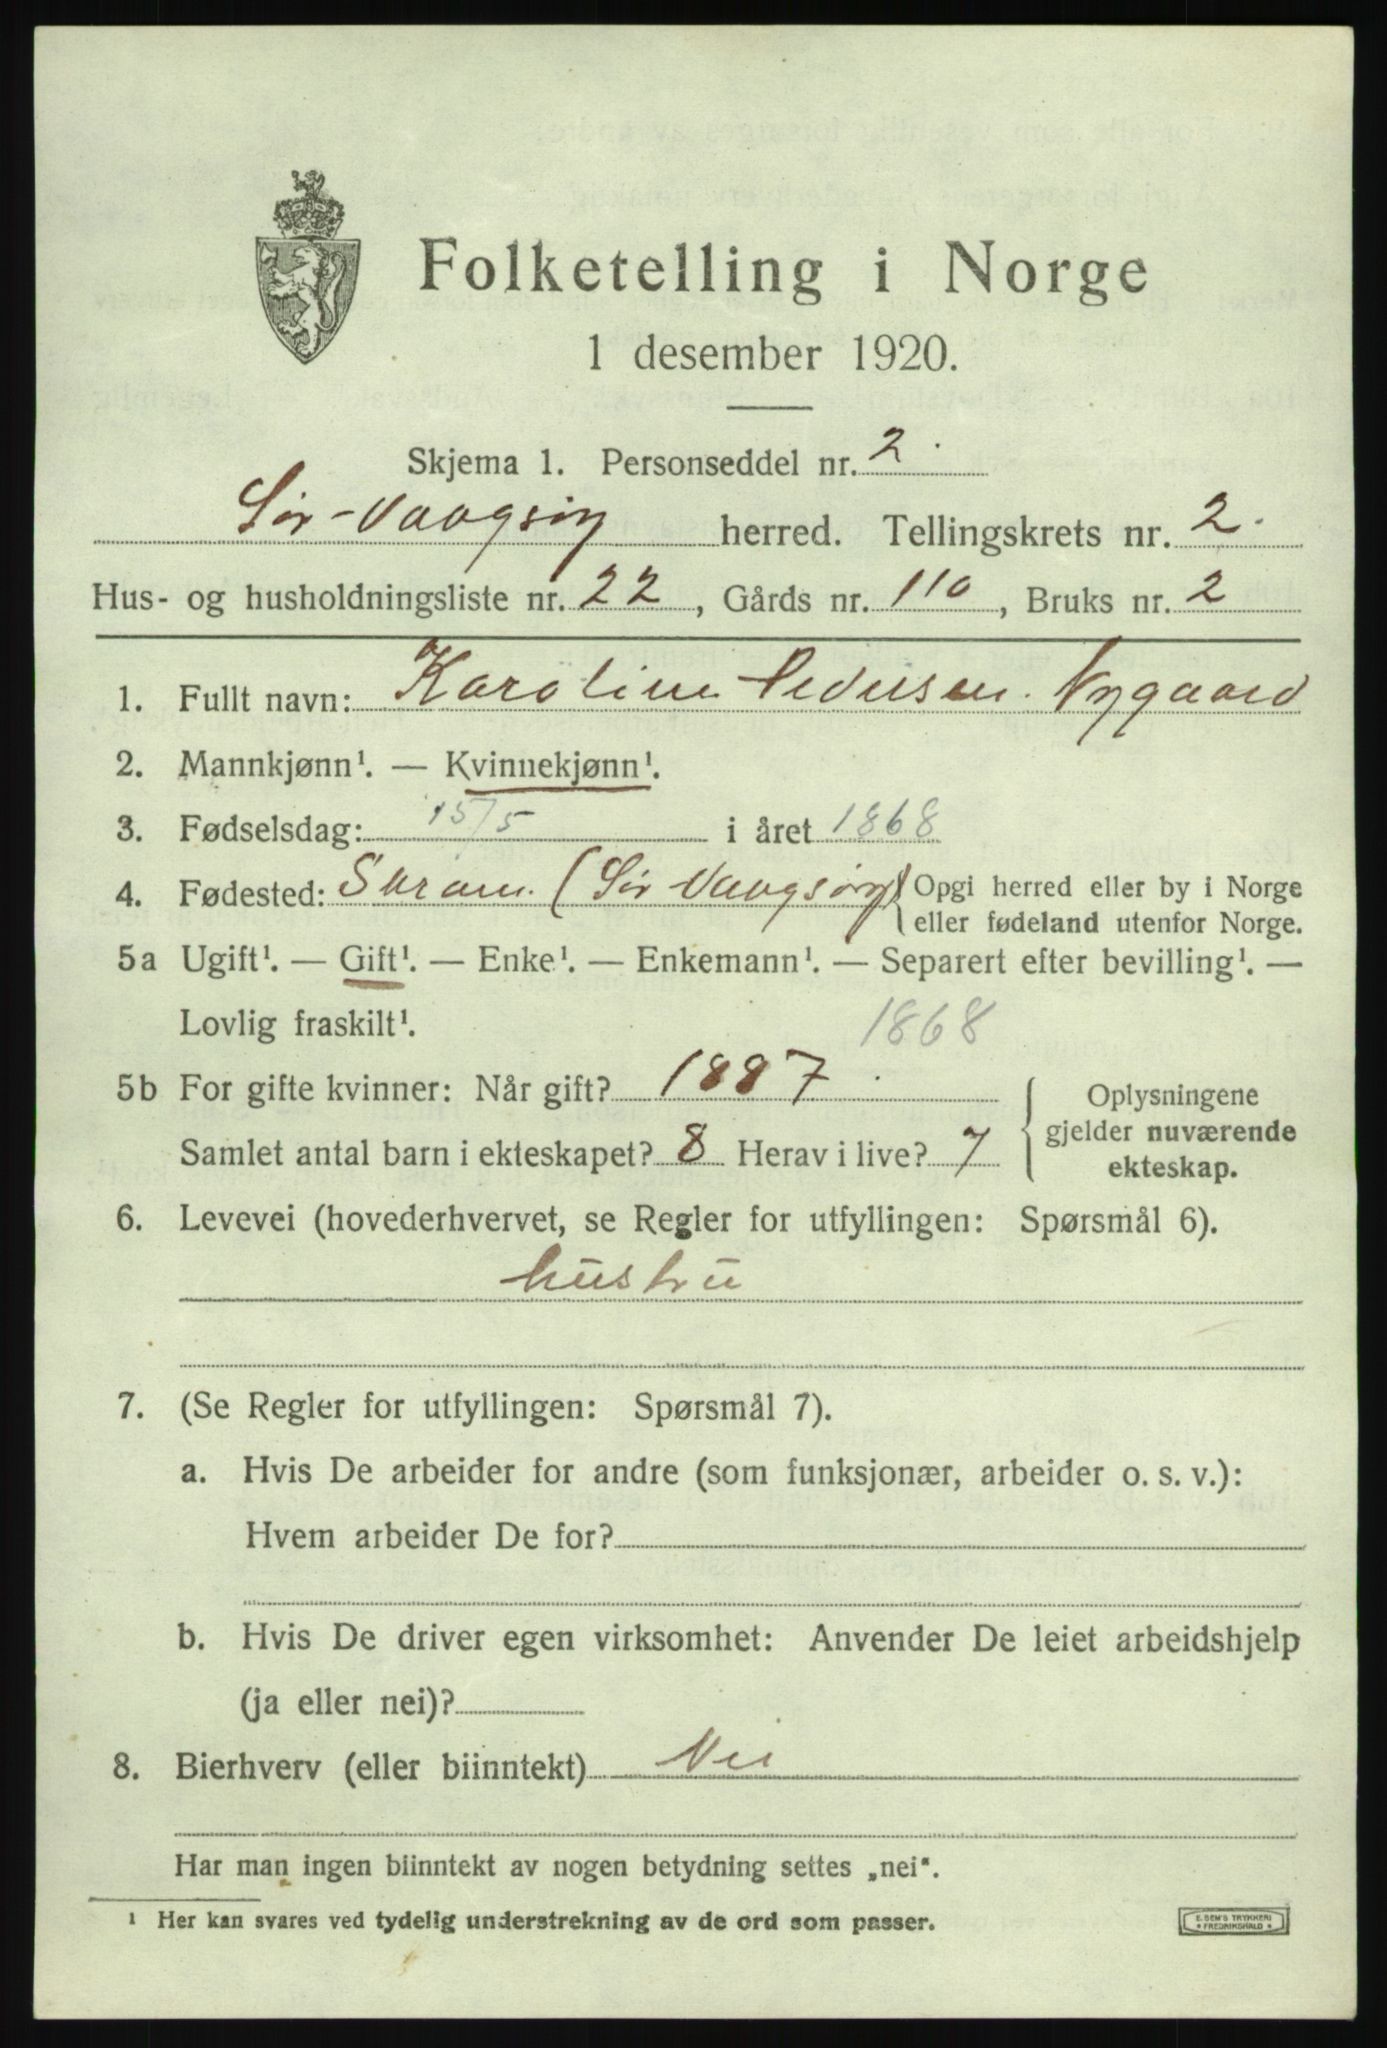 Folketelling i Norge
1 desember 1920.
Skjema 1. Personseddel nr. 2
Sör-Vaagsöy herred. Tellingskrets nr. 2.
Hus- og husholdningsliste nr. 22, Gårds nr. 110, Bruks nr. 2
1. Fullt navn: Karoline Pedersen Nygaard
2. Mannkjønn¹. — Kvinnekjønn¹.
3. Fødselsdag: 15/5 i året 1868
4. Fødested: (Sör Vaagsöy) { Opgi herred eller by i Norge
eller fødeland utenfor Norge.
5a Ugift¹. — Gift¹. — Enke¹. — Enkemann¹. — Separert efter bevilling¹. —
Lovlig fraskilt¹. 1868
5b For gifte kvinner: Når gift? 1887. { Oplysningene
Samlet antal barn i ekteskapet? 8 Herav i live? 7 gjelder nuværende
ekteskap.
6. Levevei (hovederhvervet, se Regler for utfyllingen: Spørsmål 6).
hustru
7. (Se Regler for utfyllingen: Spørsmål 7).
a. Hvis De arbeider for andre (som funksjonær, arbeider o. s. v.):
Hvem arbeider De for?
b. Hvis De driver egen virksomhet: Anvender De leiet arbeidshjelp
(ja eller nei)?
8. Bierhverv (eller biinntekt) Nei
Har man ingen biinntekt av nogen betydning settes „nei“.
¹ Her kan svares ved tydelig understrekning av de ord som passer.
E. SEM'S TRYKKERI
* FREDRIKSHALD *